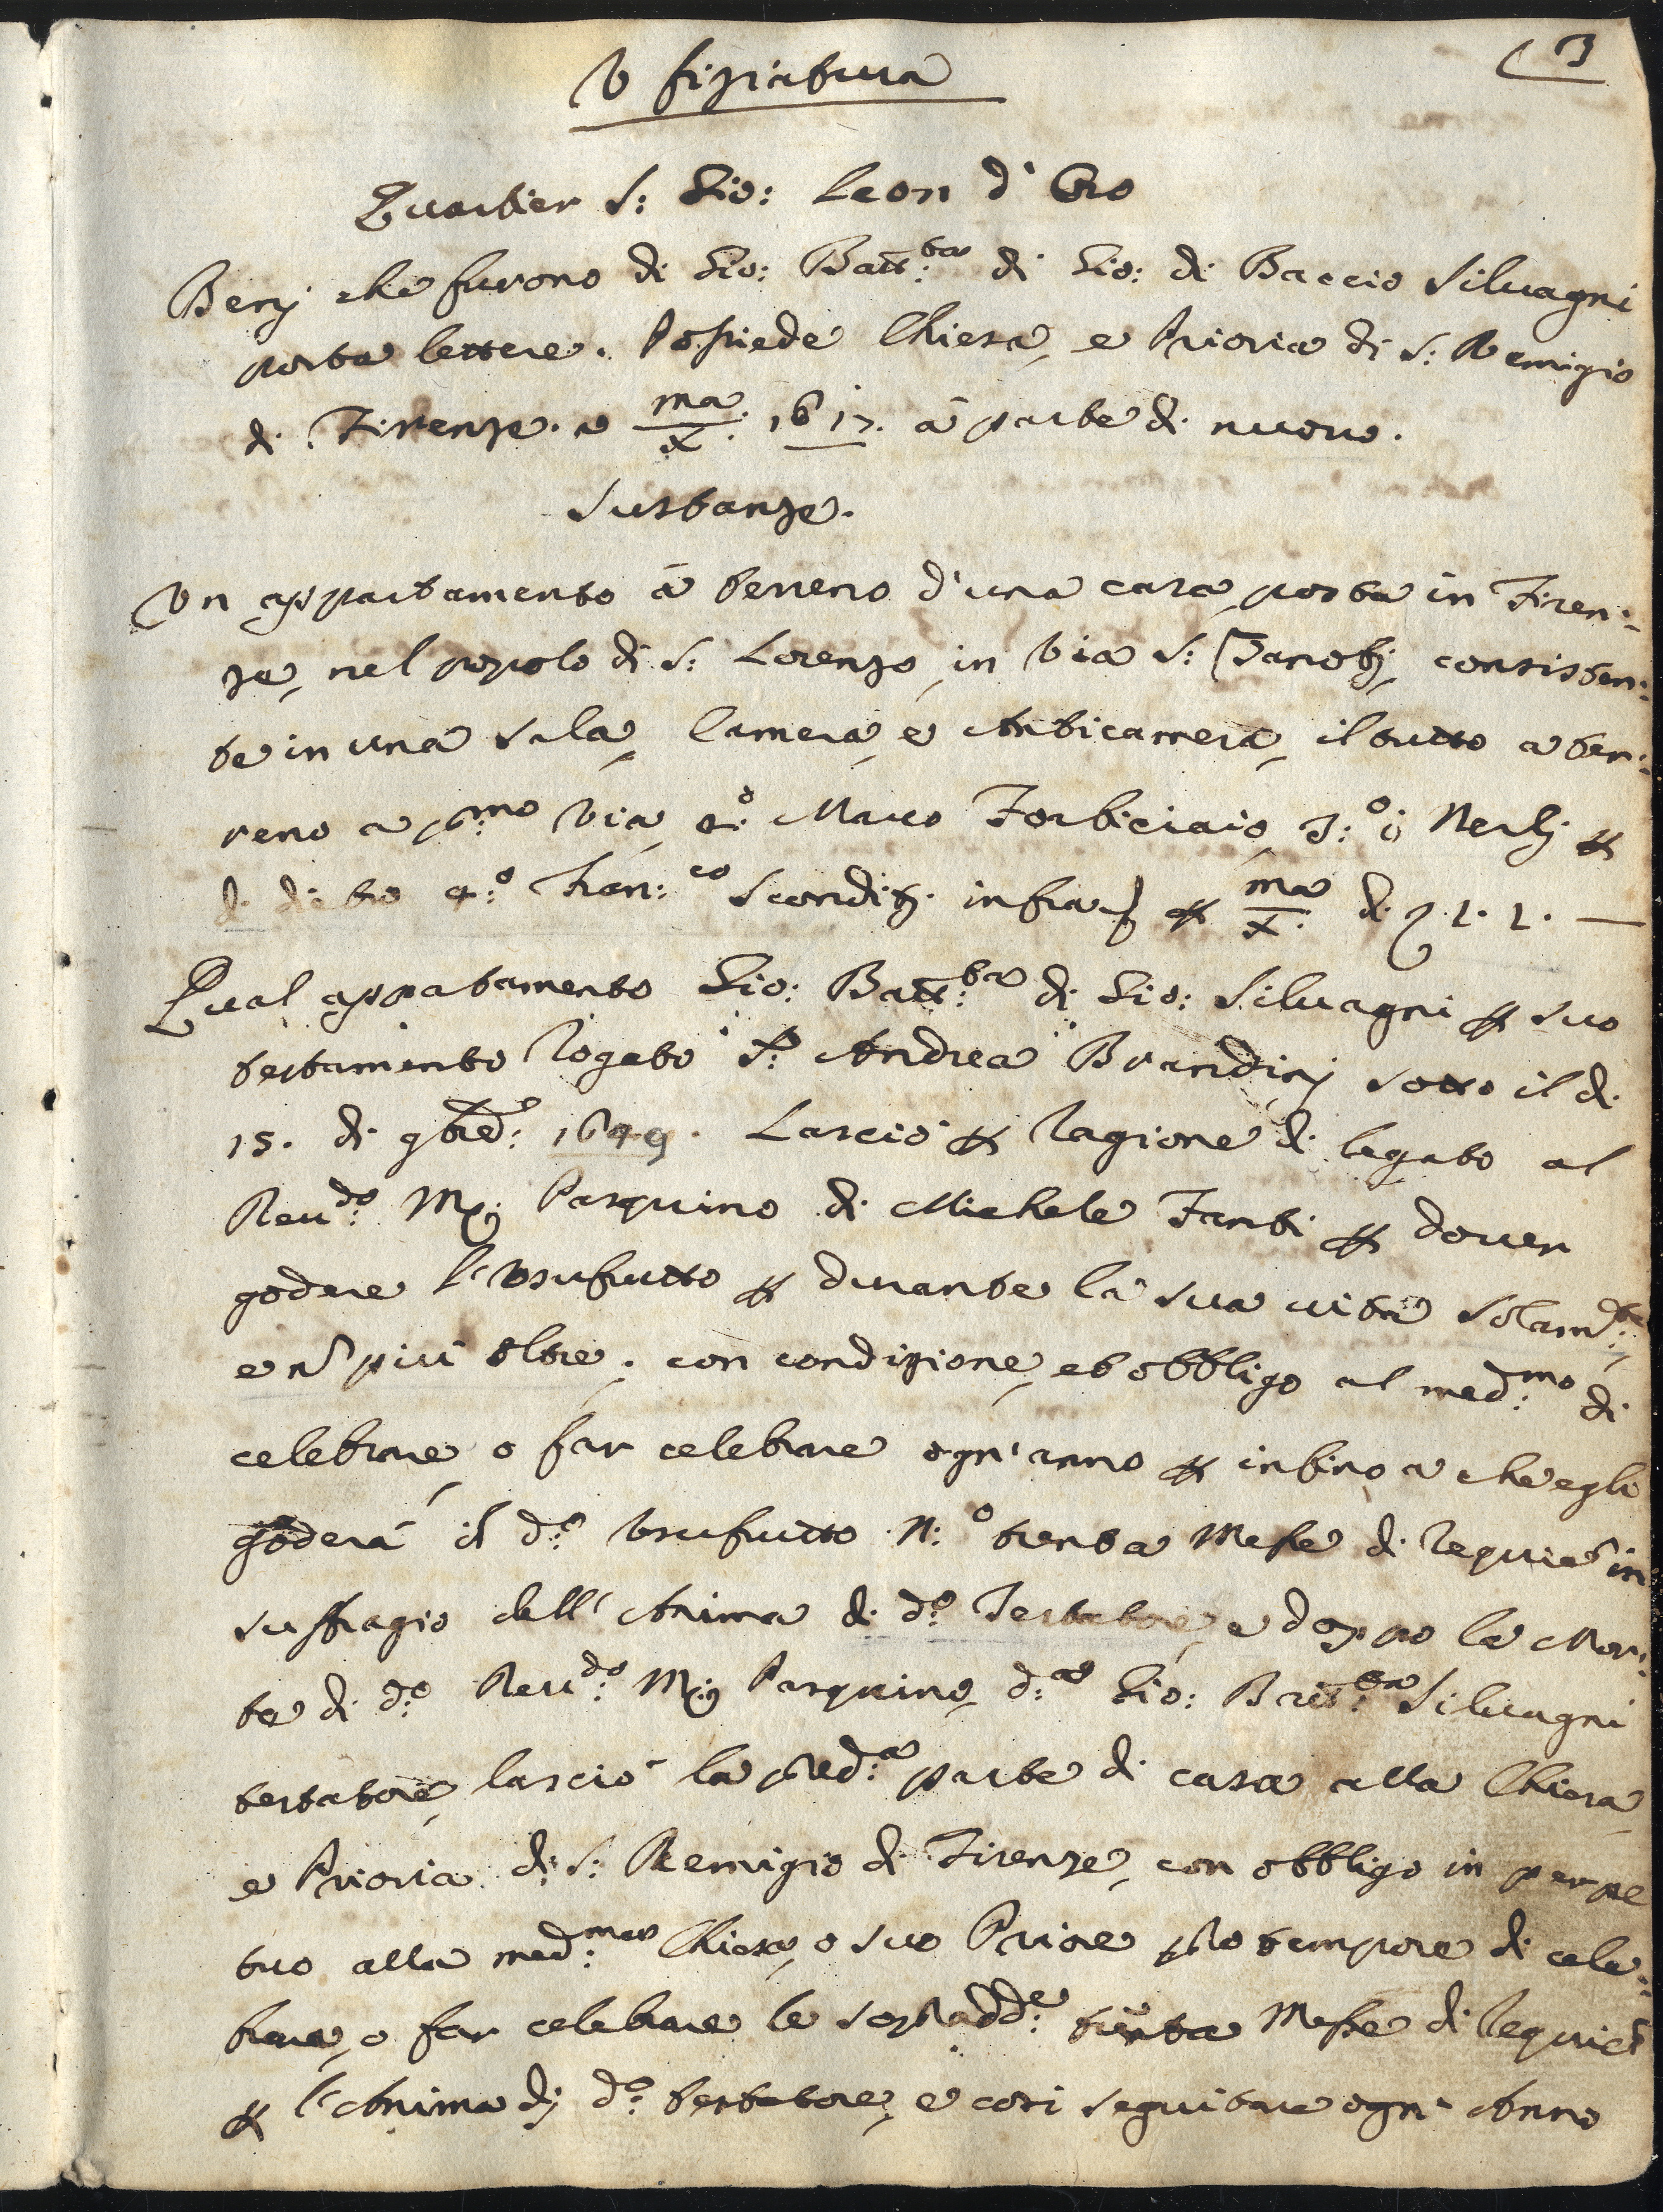 3
Vfiziatura
Quartier S: Gio: Leon d'Oro
Benj che furono di Gio: Batt:ta di Gio: di Baccio Siluagni
porta lettere. Possiede Chiesa, e Prioria di S: Remigio
di Firenze. a ma/X. 1617. à parte di nuouo.
Sustanze.
Vn appartamento à terreno d'una casa, posta in Firen:
ze, nel popolo di S: Lorenzo, in Via S: Zanobj, consisten:
te in una sala, Camera, e Anticamera, il tutto a ter:
reno a p:mo Via, 2:o Marco Forbiciaio, 3:o i Nerlj p
di detto 4:o Fran:co Scondit. infra p ma/X. di 2. 1. 1. —
Qual appartamento Gio: Batt:ta di Gio: Siluagni p suo
testamento rogato S: Andrea Brandisj sotto il di
15. di 9bre: 1649. Lasciò p ragione di legato al
Reu:do M: Pasquino di Michele Fanti p douer
godere l'Vsufrutto p durante la sua uita solam:te
e n piu oltre; con condizione, et obbligo al med:mo di
celebrare, o far celebrare ogn'anno p infino a che egli
goderà il d:o Vsufrutto N:o trenta Messe di requie in
suffragio dell'Anima di d:o Testatore, e doppo la Mor:
te di d:o Reu:do M: Pasquino, d:o Gio: Batt:ta Siluagni
testatore, lasciò la pred:a parte di casa alla Chiesa
e Prioria di S: Remigio di Firenze, con obbligo in perpe
tuo alla med:ma Chiesa, o suo Priore pro tempore di cele:
brare, o far celebrare le sopradd:e trenta Messe di requie
p l'Anima dj d:o testatore, e cosi seguitare ogn'Anno